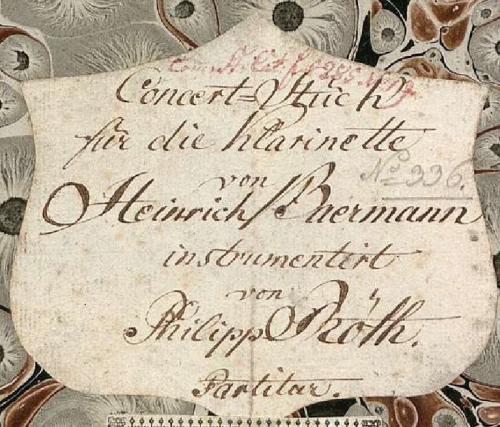 Concert=Stück
für die Klarinette
von
No 336.
Heinrich Baermann
instrumentirt
von
Philipp Röth.
Partitur.